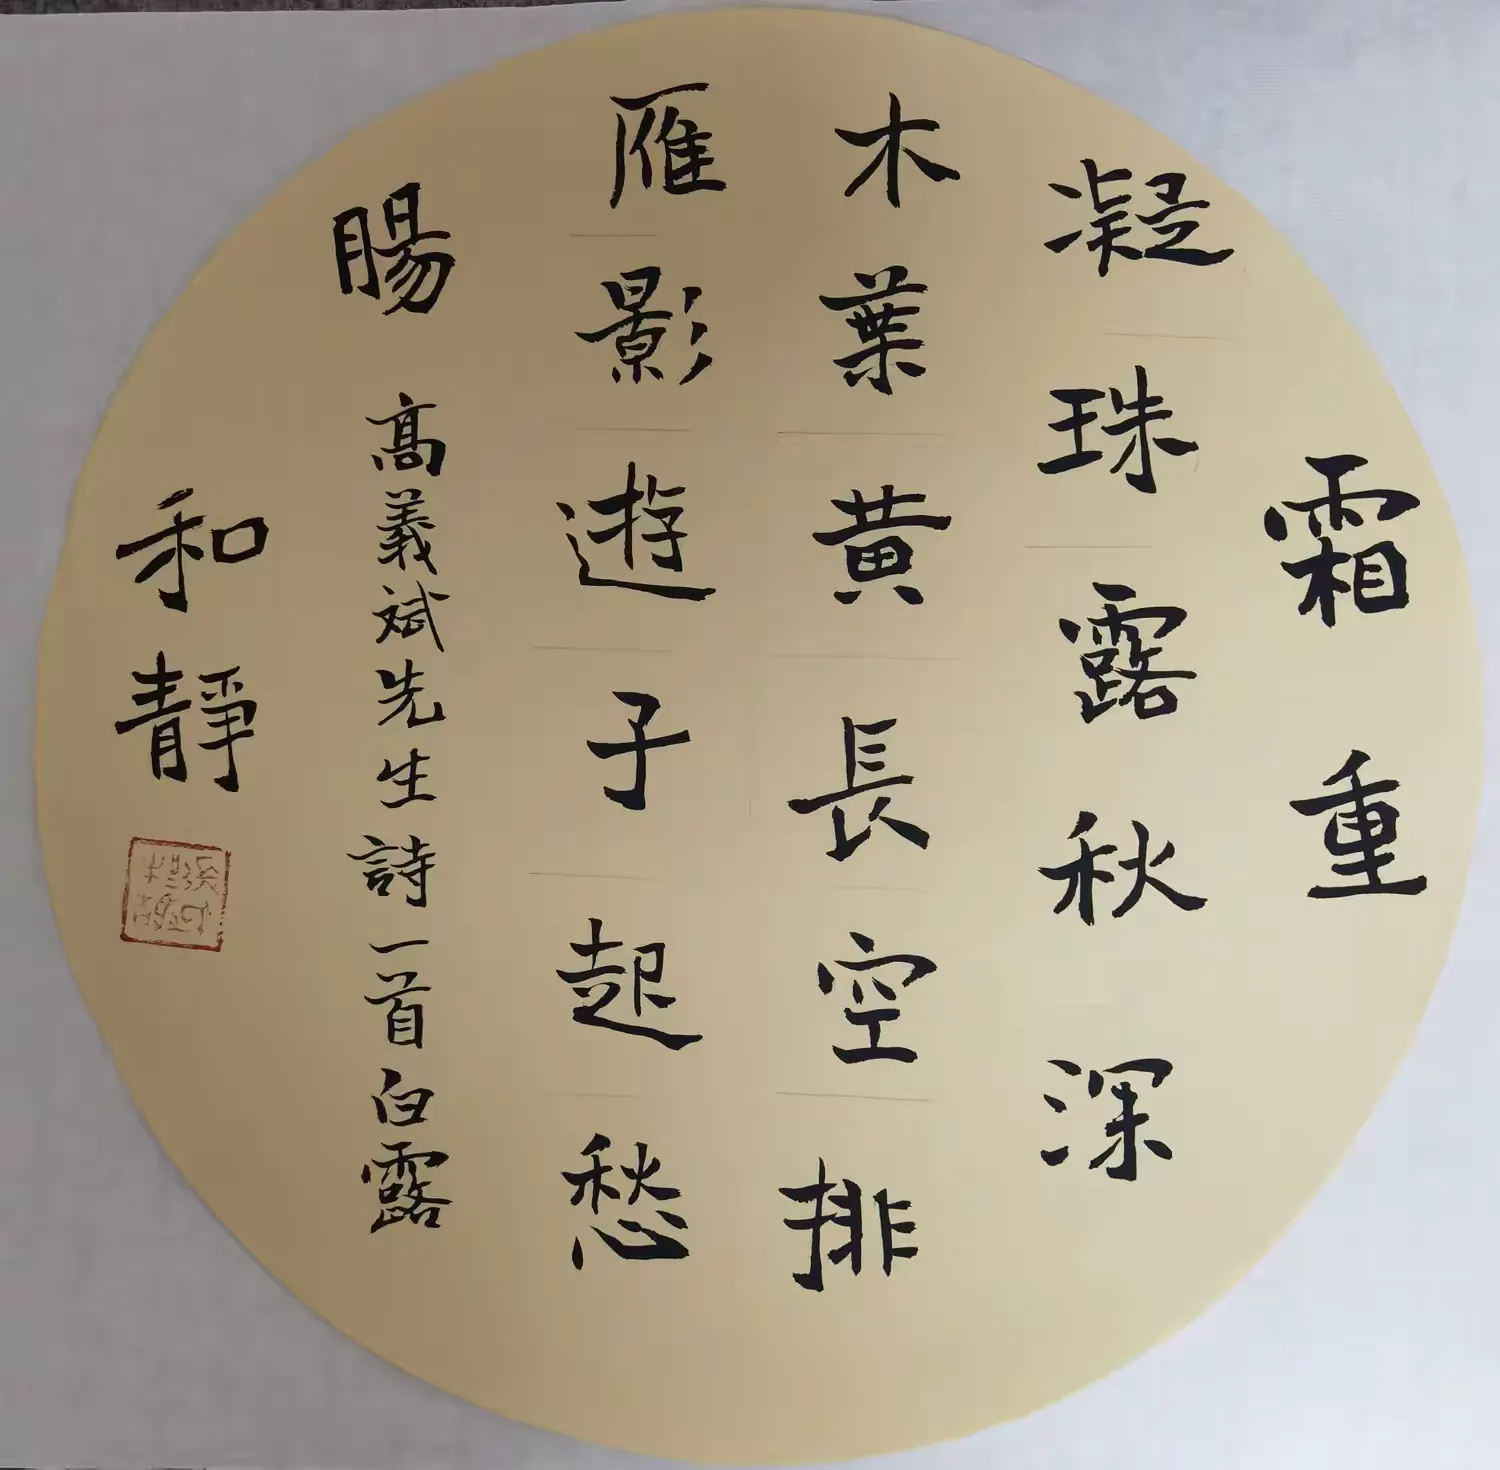 霜重
凝珠露秋深
木葉黄長空排
雁影遊子起愁
腸 高義斌先生詩一首白露
和靜